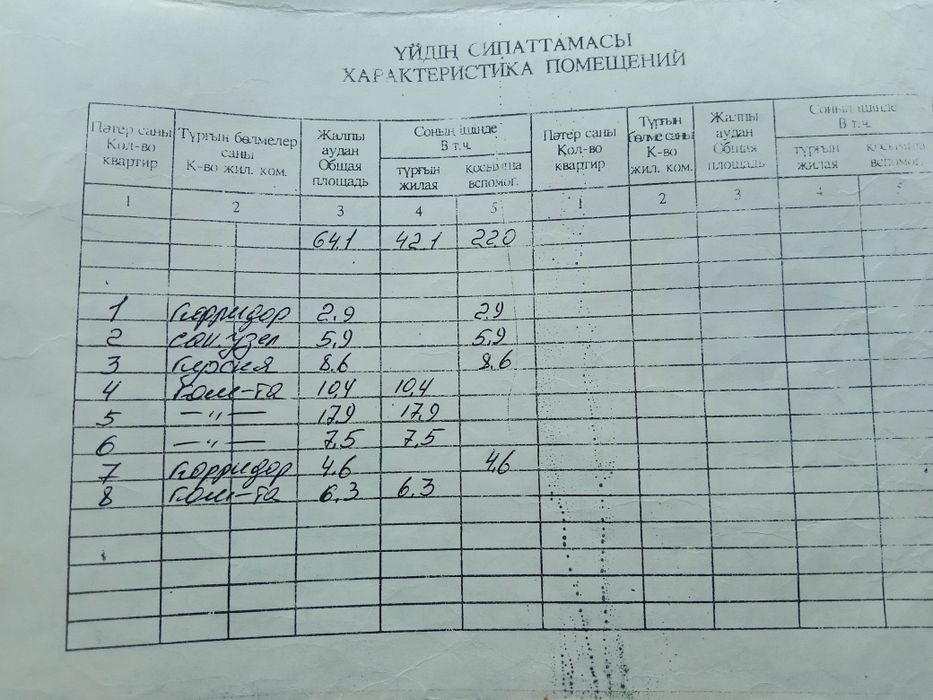 ҮЙДІҢ СИПАТТАМАСЫ
ХАРАКТЕРИСТИКА ПОМЕЩЕНИЙ
Пәтер саны Кол-во квартир | Тұрғын бөлмелер саны К-во жил. ком. | Жалпы аудан Общая площадь | Соның ішінде В т.ч. | Пәтер саны Кол-во квартир | Тұрғын бөлме саны К-во жил. ком. | Жалпы аудан Общая площадь | Соның ішінде В т.ч.
тұрғын жилая | қосымша вспомог. | тұрғын жилая | қосымша вспомог.
1 | 2 | 3 | 4 | 5 | 1 | 2 | 3 | 4 | 5
64.1 | 42.1 | 22.0
1 | Корридор | 2.9 | 2.9
2 | сан.узел | 5,9 | 5,9
3 | Кухня | 8.6 | 8.6
4 | Ком-та | 10,4 | 10,4
5 | —„— | 17.9 | 17.9
6 | —„— | 7,5 | 7,5
7 | Корридор | 4.6 | 4.6
8 | Ком-та | 6.3 | 6.3